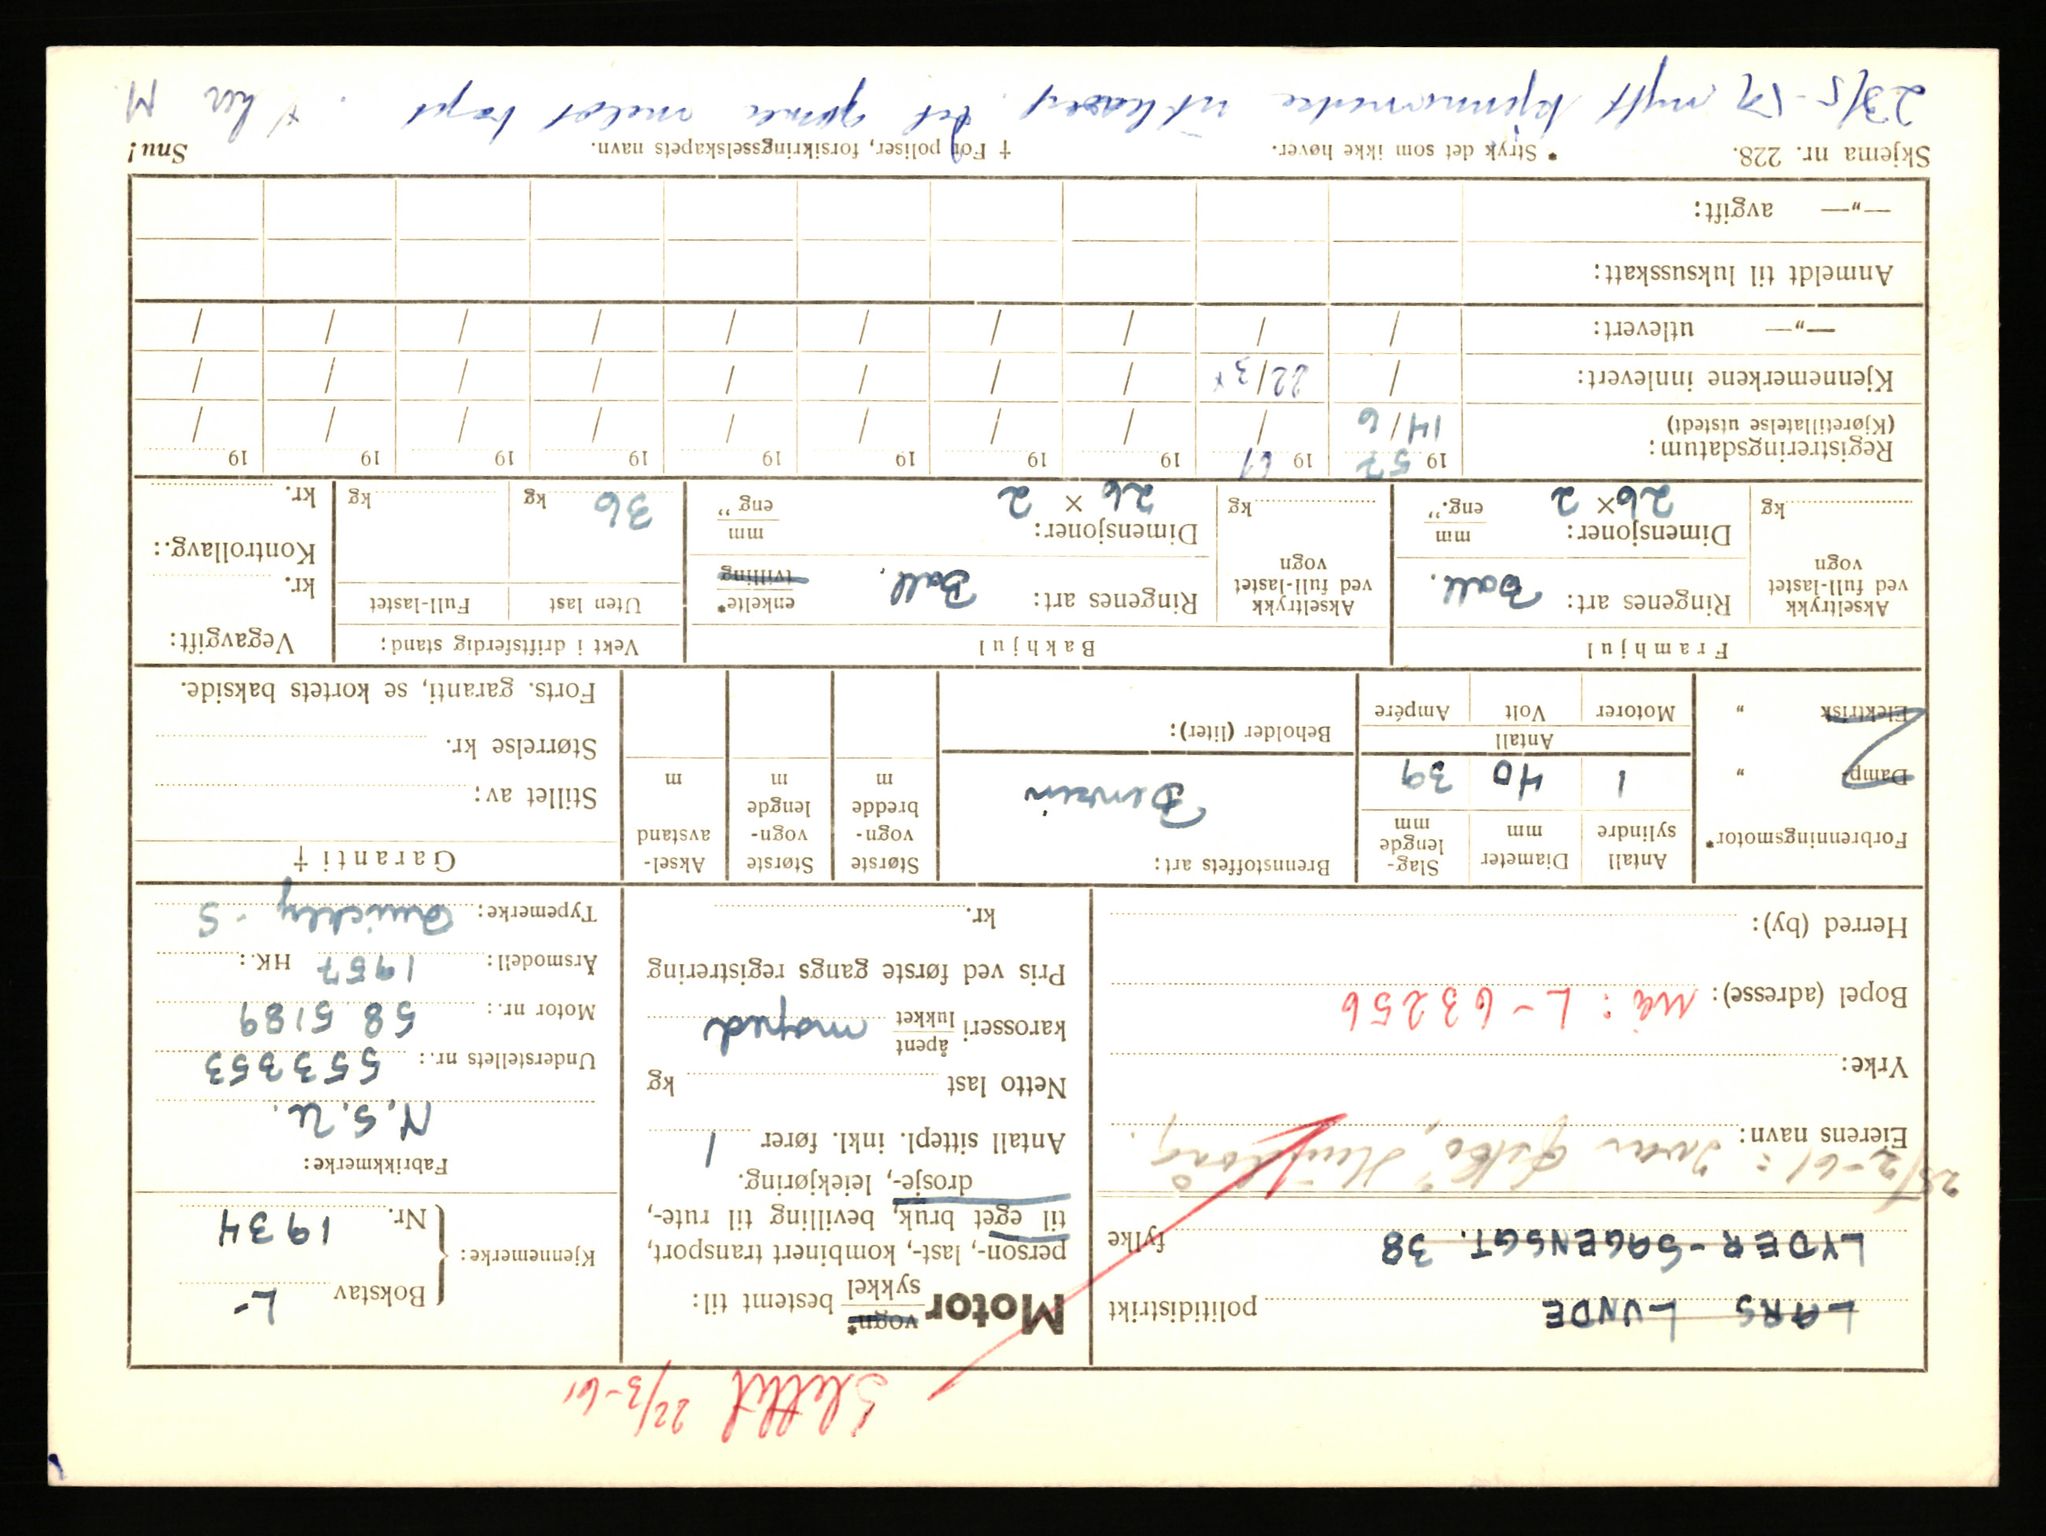 Slettet 22/3-61
LARS LUNDE politidistrikt
LYDER-SAGENSGT. 38 fylke
25/2-61: Ivar
Eierens navn:
Yrke:
Bopel (adresse): Nå: L-63256
Herred (by):
Motor vogn* sykkel bestemt til:
person-, last-, kombinert transport,
til eget bruk, bevilling til rute-,
drosje-, leiekjøring.
Antall sittepl. inkl. fører 1
Netto last kg
karosseri åpent lukket moped
Pris ved første gangs registrering
kr.
Kjennemerke: Bokstav L-
Nr. 1934
Fabrikkmerke:
N.S.U.
Understellets nr.: 553353
Motor nr.: 585189
Årsmodell: 1957 HK.:
Typemerke: Quickly-S
Forbrenningsmotor* Antall sylindre Diameter mm Slag-lengde mm
Damp- " 1 40 39
Antall
Elektrisk " Motorer Volt Ampére
Brennstoffets art:
Benzin
Beholder (liter):
Største vogn-bredde m
Største vogn-lengde m
Aksel-avstand m
Garanti †
Stillet av:
Størrelse kr.
Forts. garanti, se kortets bakside.
Framhjul Bakhjul Vekt i driftsferdig stand: Vegavgift:
Akseltrykk ved full-lastet vogn kg
Ringenes art: Ball.
Dimensjoner: mm eng."
26 × 2
Akseltrykk ved full-lastet vogn kg
Ringenes art: Ball. enkelte* tvilling
Dimensjoner: mm eng"
26 × 2
Uten last Full-lastet
36 kg kg
kr.
Kontrollavg.:
kr.
Registreringsdatum: 19 57 19 61 19 19 19 19 19 19 19 19
(Kjøretillatelse utstedt) 14/6 / / / / / / / / /
Kjennemerkene innlevert: / 22/3 x / / / / / / / /
—„— utlevert: / / / / / / / / / /
Anmeldt til luksusskatt:
—„— avgift:
Skjema nr. 228. * Stryk det som ikke høver. † For poliser, forsikringsselskapets navn. Snu!
23/5-57 nytt kjennemerke utlevert. Det gamle meldt tapt. x her